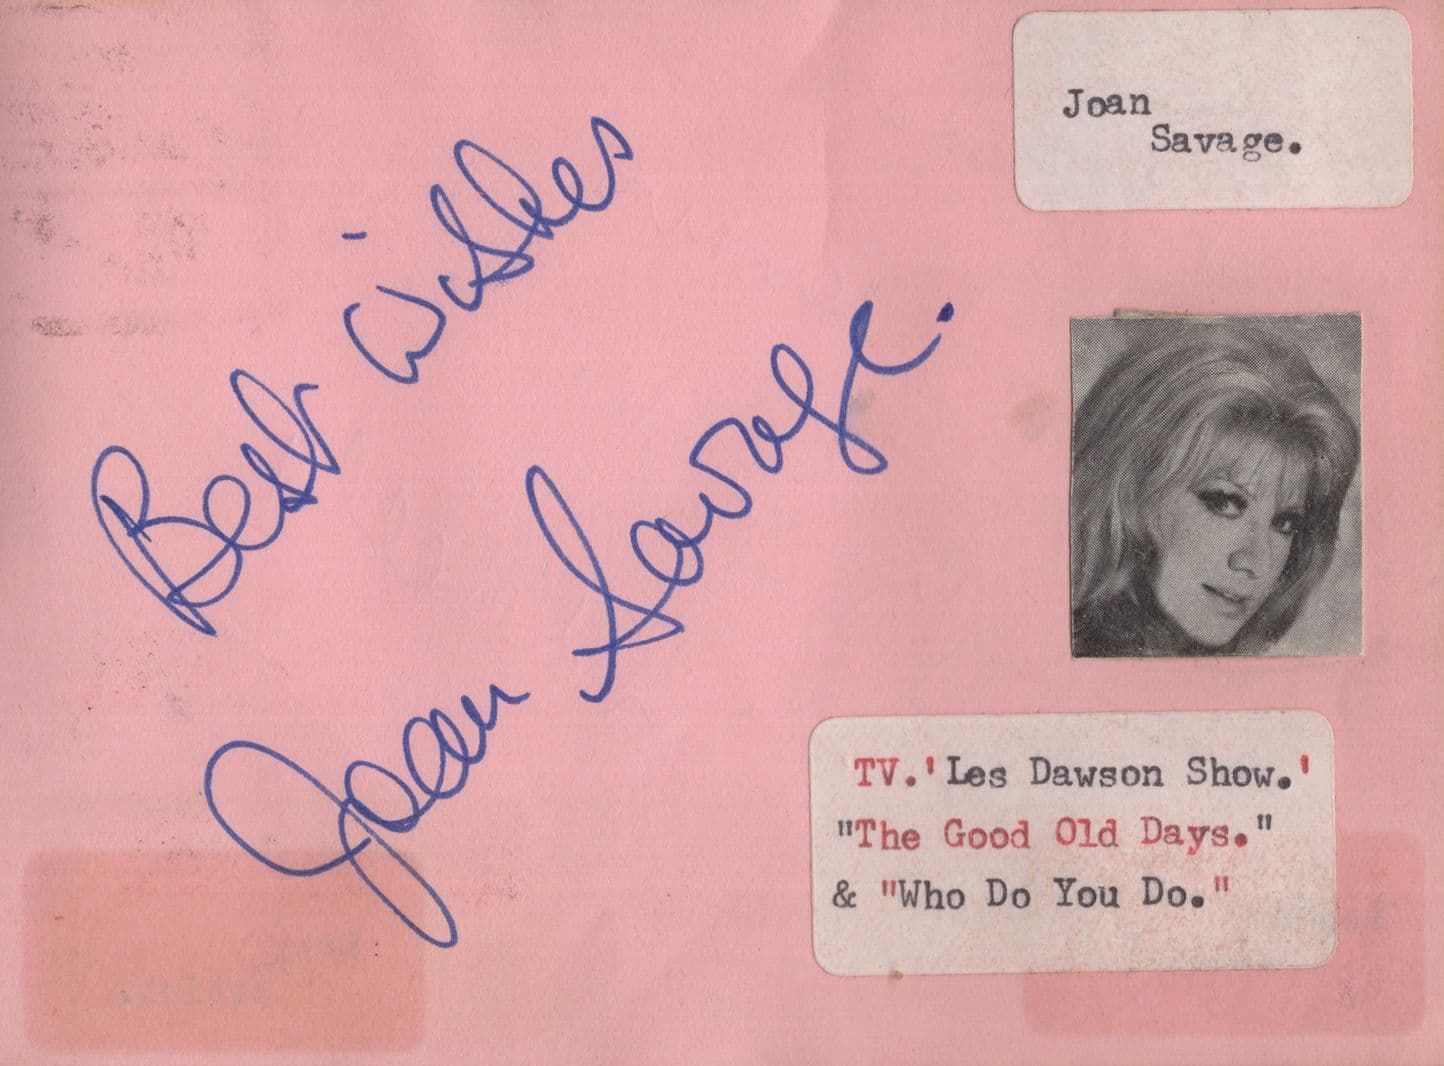 Joan
Savage.
Best Wishes
Joan Savage.
TV.'Les Dawson Show.'
"The Good Old Days."
& "Who Do You Do."